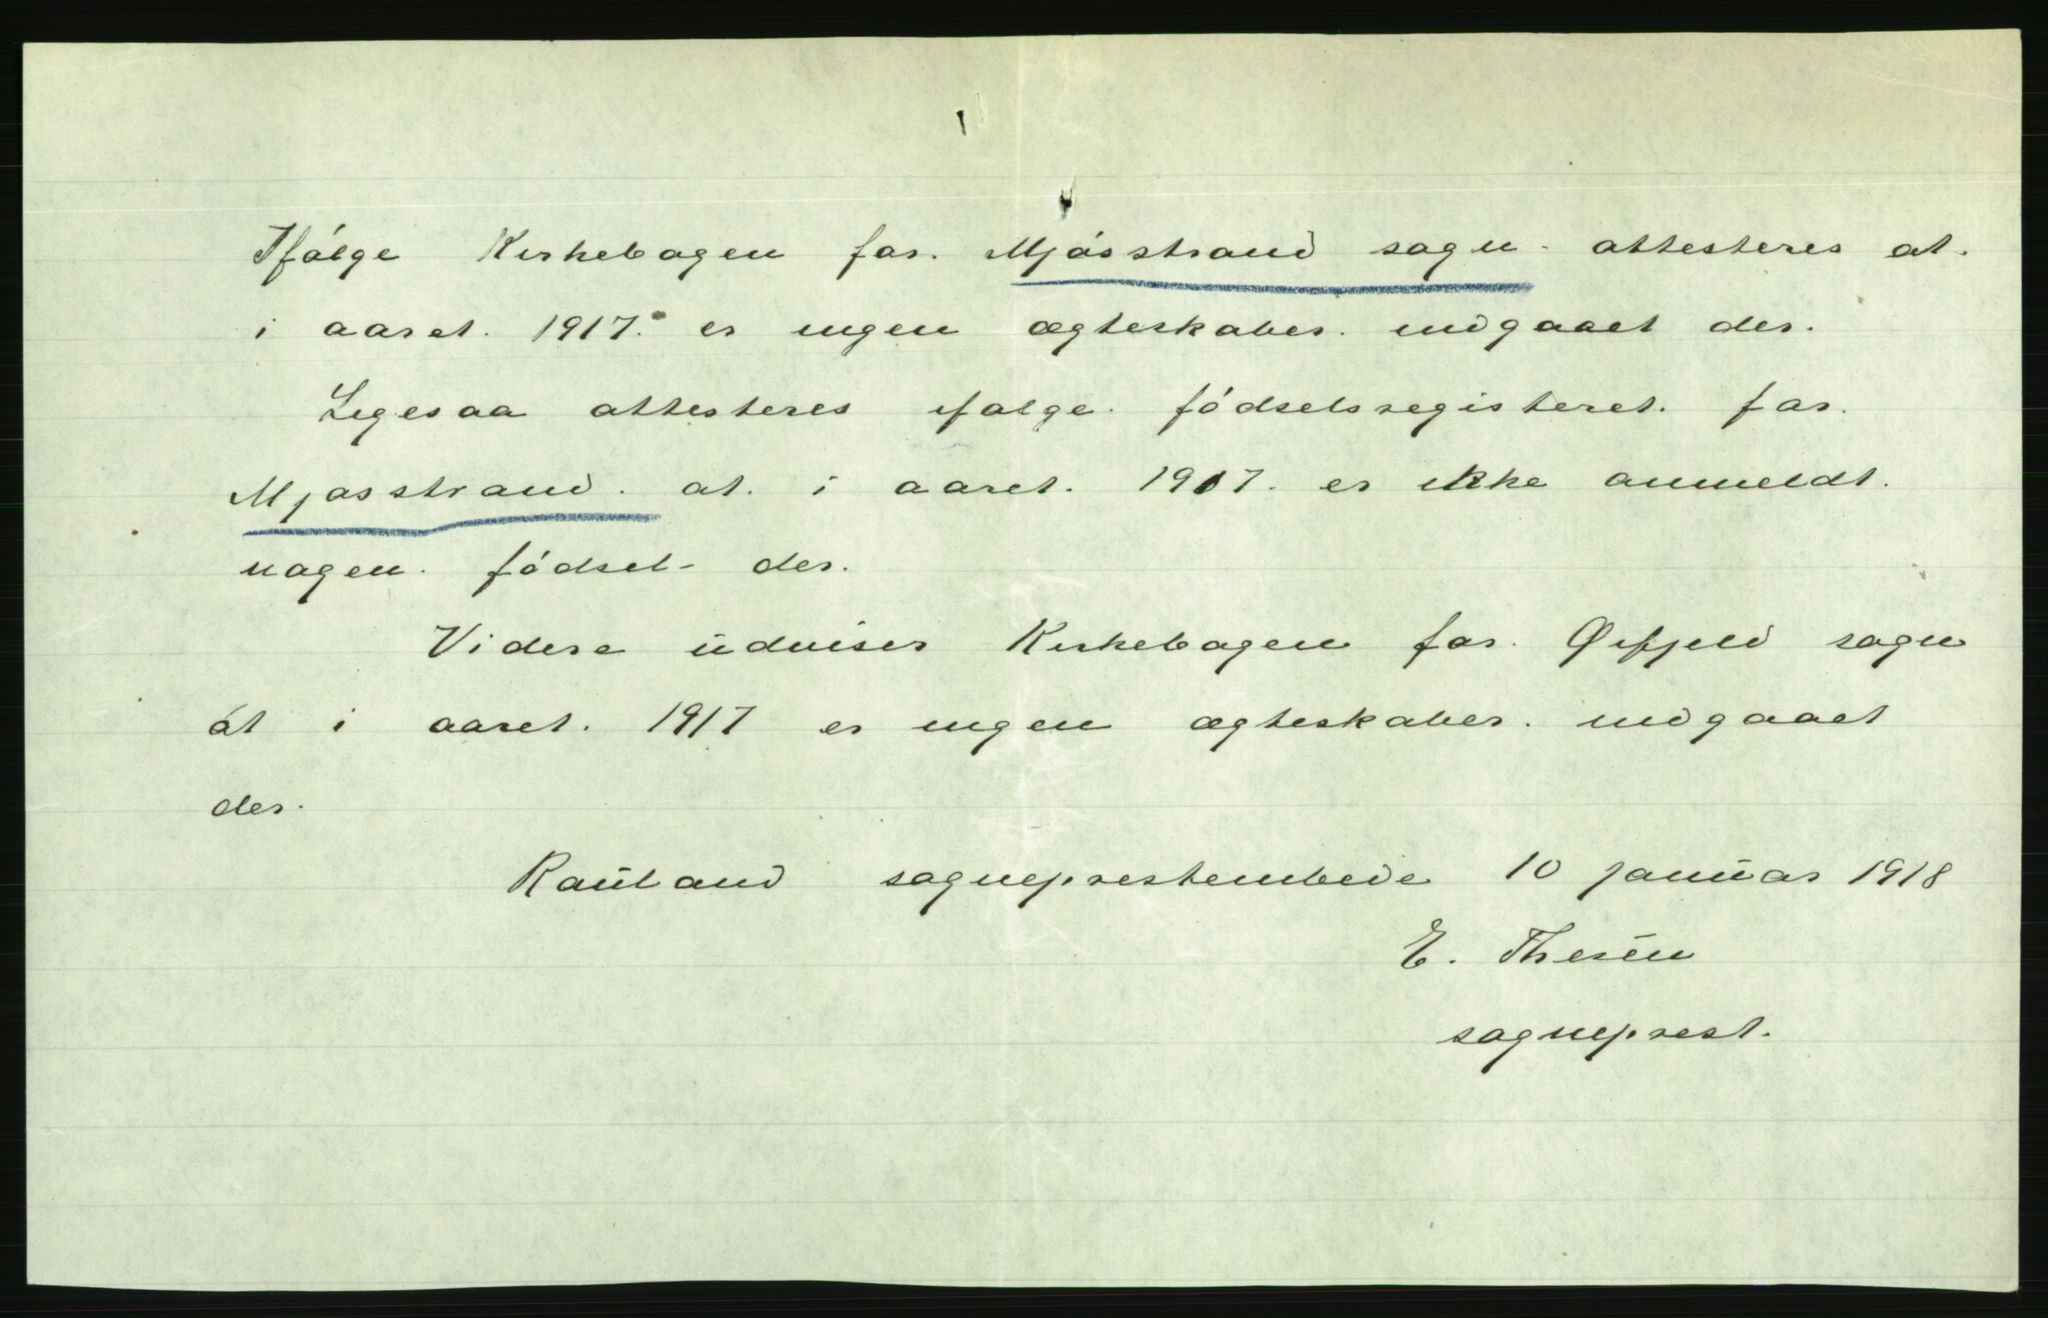 Ifølge Kirkebogen for Mjøsstrand sogn attesteres at
i aaret 1917 er ingen ægteskaber indgaaet der.
Ligesaa attesteres ifølge fødselsregisteret for
Mjøsstrand at i aaret 1917 er ikke anmeldt
nogen fødsel der.
Videre udviser Kirkebogen for Øifjeld sogn
at i aaret 1917 er ingen ægteskaber indgaaet
der.
Rauland sogneprestembede 10 januar 1918
E. Thesen
sogneprest.